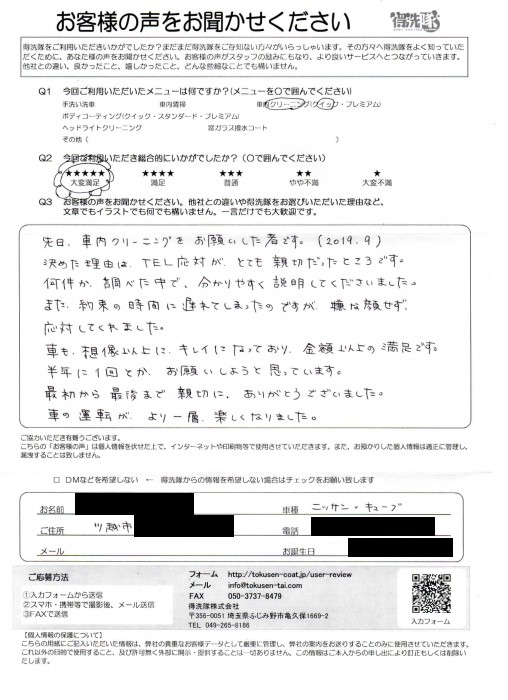 お客様の声をお聞かせください
得洗隊
得洗隊をご利用いただきいかがでしたか?まだまだ得洗隊をご存知ない方々がいらっしゃいます。その方々へ得洗隊をよく知っていた
だくために、あなた様の声をお聞かせください。お客様の声がスタッフの励みにもなり、より良いサービスへとつながっていきます。
他社との違い、良かったこと、嬉しかったこと、どんな些細なことでも構いません。
Q1 今回ご利用いただいたメニューは何ですか?(メニューを〇で囲んでください)
手洗い洗車 車内清掃 車内クリーニング(クイック・プレミアム)
ボディコーティング(クイック・スタンダード・プレミアム)
ヘッドライトクリーニング 窓ガラス撥水コート
その他( )
Q2 今回ご利用いただき総合的にいかがでしたか?(〇で囲んでください)
★★★★★ ★★★★ ★★★ ★★ ★
大変満足 満足 普通 やや不満 大変不満
Q3 お客様の声をお聞かせください。他社との違いや得洗隊をお選びいただいた理由など、
文章でもイラストでも何でも構いません。一言だけでも大歓迎です。
先日、車内クリーニングをお願いした者です。(2019.9)
決めた理由は、TEL応対が、とても親切だったところです。
何件か、調べた中で、分かりやすく説明してくださいました。
また、約束の時間に遅れてしまったのですが、嫌な顔せず、
応対してくれました。
車も、想像以上に、キレイになっており、金額以上の満足です。
半年に1回とか、お願いしようと思っています。
最初から最後まで親切に、ありがとうございました。
車の運転が、より一層、楽しくなりました。
ご協力いただき有難うございます。
こちらの「お客様の声」は個人情報を伏せた上で、インターネットや印刷物等で使用させていただきます。また、お預かりした個人情報は適正に管理し、
漏洩することは致しません。
□ DMなどを希望しない ← 得洗隊からの情報を希望しない場合はチェックをお願い致します
お名前 車種 ニッサン・キューブ
ご住所 川越市 電話
メール お誕生日
ご応募方法
①入力フォームから送信
②スマホ・携帯等で撮影後、メール送信
③FAXで送信
フォーム http://tokusen-coat.jp/user-review
メール info@tokusen-tai.com
FAX 050-3737-8479
得洗隊株式会社
〒356-0051 埼玉県ふじみ野市亀久保1669-2
TEL 049-265-8186
入力フォーム
【個人情報の保護について】
こちらの用紙にご記入いただいた情報は、弊社の貴重なお客様データとして厳重に管理し、弊社の案内をお送りすることのみに使用させていただきます。
これ以外の目的で使用すること、及び許可無く外部に開示・提供することは一切ありません。この情報はご本人からの申し出により訂正もしくは削除い
たします。